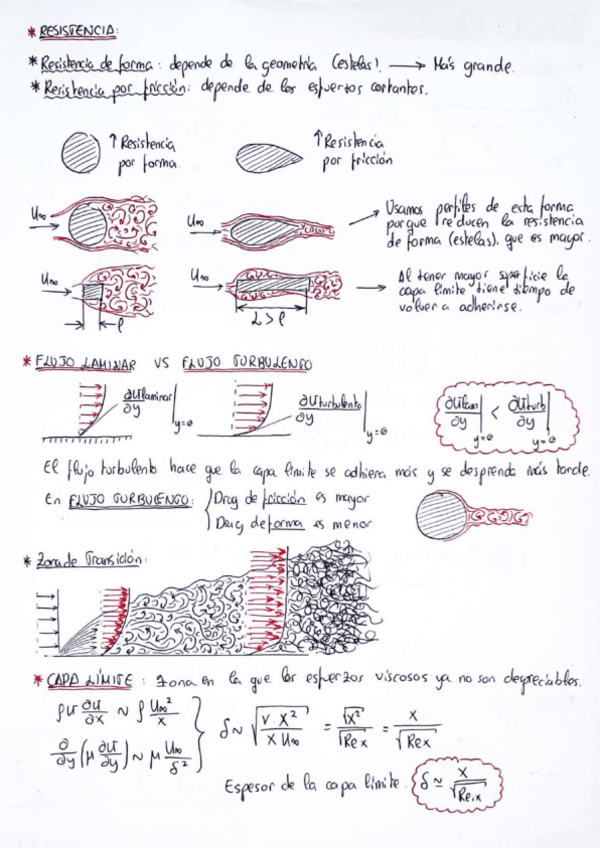 * RESISTENCIA:
* Resistencia de forma: depende de la geometría (estelas). → Más grande.
* Resistencia por fricción: depende de los esfuertos cortantes.
↑ Resistencia por forma.
↑ Resistencia por fricción
U∞
U∞
Usamos perfiles de esta forma
porque ↓ reducen la resistencia
de forma (estelas), que es mayor.
U∞
ℓ
U∞
L > ℓ
Al tener mayor superficie la
capa límite tiene tiempo de
volver a adherirse.
* FLUJO LAMINAR VS FLUJO TURBULENTO
∂u laminar/∂y |y=0
∂u turbulento/∂y |y=0
∂u lam/∂y |y=0 < ∂u turb/∂y |y=0
El flujo turbulento hace que la capa límite se adhiera más y se desprenda más tarde.
En FLUJO TURBULENTO: { Drag de fricción es mayor
Drag de forma es menor
* Zona de Transición:
* CAPA LÍMITE: Zona en la que los esfuerzos viscosos ya no son despreciables.
ρu ∂u/∂x ~ ρ U∞²/x
∂/∂y (μ ∂u/∂y) ~ μ U∞/δ²
δ ~ √(ν·x²/(x U∞)) = √x²/√Rex = x/√Rex
Espesor de la capa límite. δ ≃ x/√Re,x